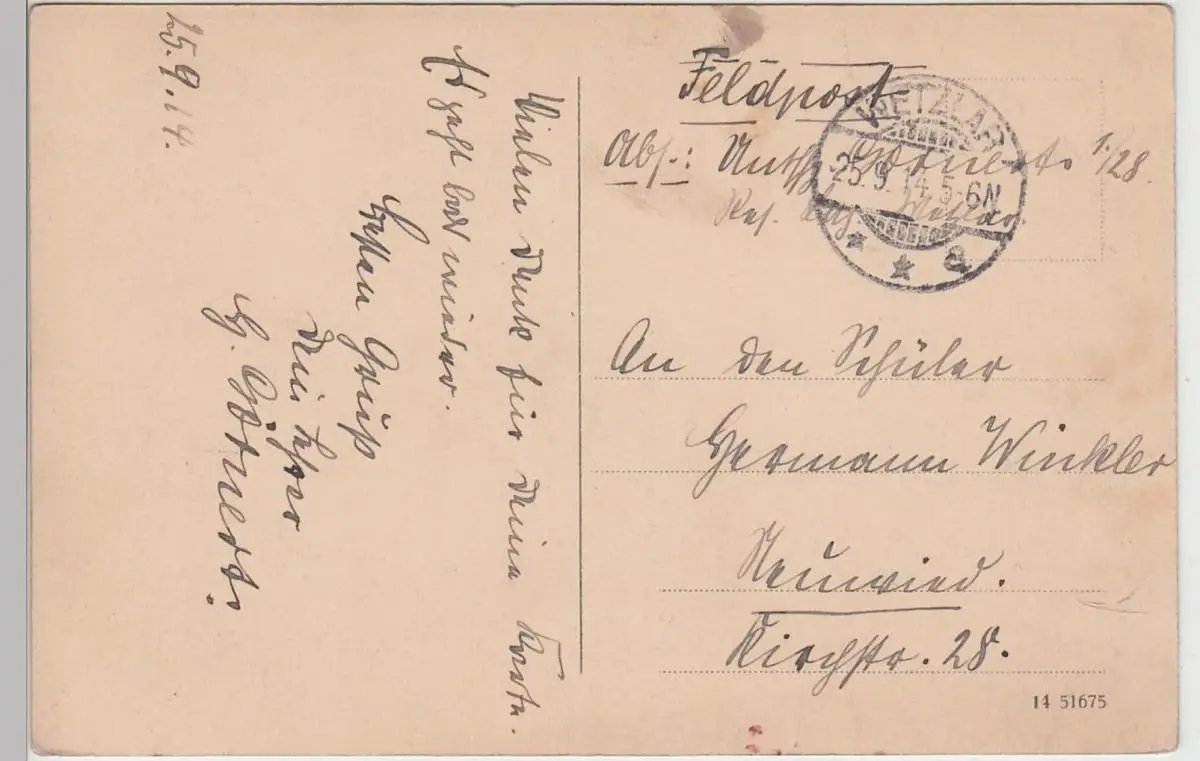 25.9.14.
Vielen Dank für Deine Karte.
Es geht bald wieder.
Besten Gruß
Dein Lehrer
H. Görnert.
Feldpost
Abs.: Görnert 1/28.
Res. Laz. Wetzlar
WETZLAR
25.9.14.5-6N
* * a
An den Schüler
Hermann Winkler
Neuwied.
Kirchstr. 28.
14 51675